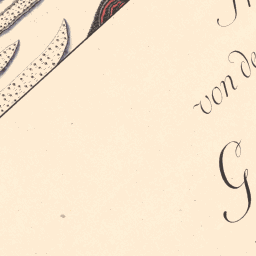 von de
G